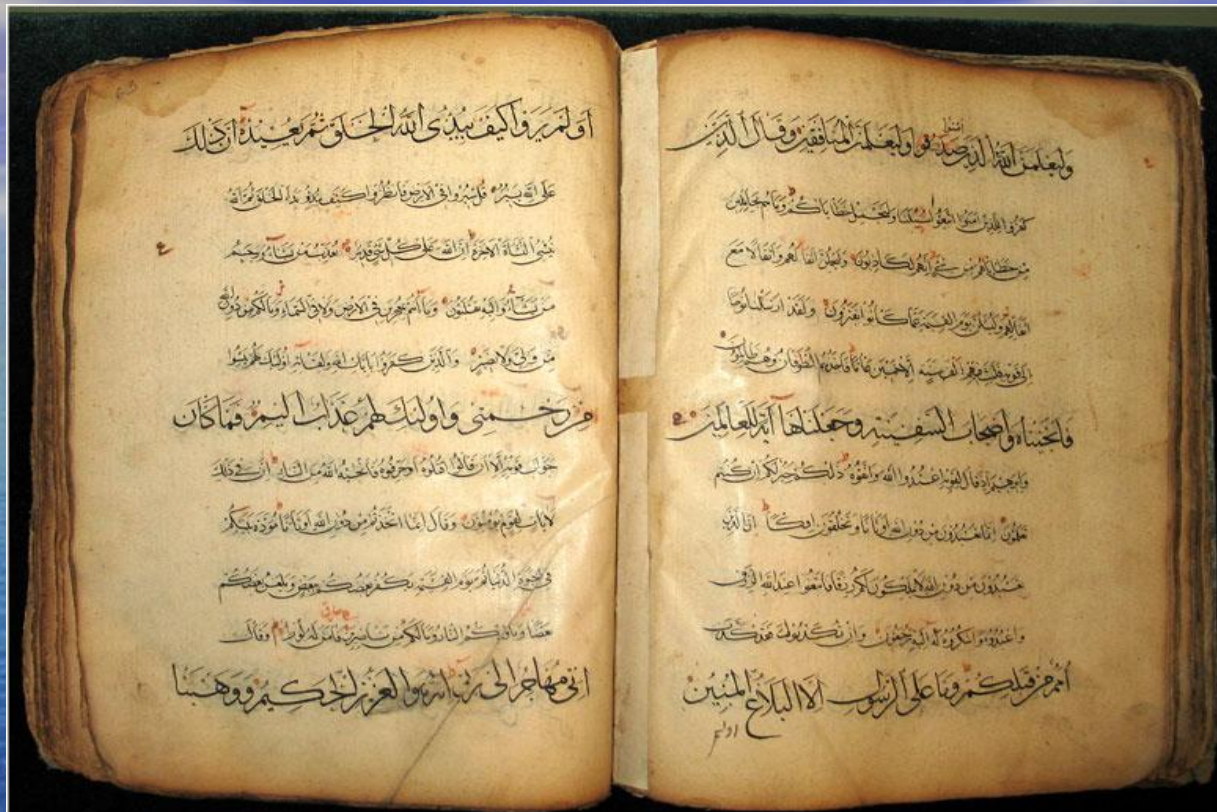 امنوا
وليعلمن الله الذين صدقوا وليعلمن المنافقين وقال الذين
كفروا للذين امنوا اتبعوا سبيلنا ولنحمل خطاياكم وما هم بحاملين
من خطاياهم من شئ انهم لكاذبون وليحملن اثقالهم واثقالا مع
اثقالهم وليسئلن يوم القيمة عما كانوا يفترون ولقد ارسلنا نوحا
الى قومه فلبث فيهم الف سنة الا خمسين عاما فاخذهم الطوفان وهم ظالمون
فَانجَيناهُ وَاصحابَ السَفينَةِ وَجَعَلناها آيَةً لِلعالَمينَ
وابرهيم اذ قال لقومه اعبدوا الله واتقوه ذلكم خير لكم ان كنتم
تعلمون انما تعبدون من دون الله اوثانا وتخلقون افكا ان الذين
تعبدون من دون الله لا يملكون لكم رزقا فابتغوا عند الله الرزق
واعبدوه واشكروا له اليه ترجعون وان تكذبوا فقد كذب
امم من قبلكم وما على الرسول الا البلاغ المبين
اولم
اولم يروا كيف يبدئ الله الخلق ثم يعيده ان ذلك
على الله يسير قل سيروا في الارض فانظروا كيف بدأ الخلق ثم الله
ينشئ النشأة الاخرة ان الله على كل شئ قدير يعذب من يشاء ويرحم
من يشاء واليه تقلبون وما انتم بمعجزين في الارض ولا في السماء وما لكم من دون الله
من ولي ولا نصير والذين كفروا بايات الله ولقائه اولئك يئسوا
من رحمتي واولئك لهم عذاب اليم فما كان
جواب قومه الا ان قالوا اقتلوه او حرقوه فانجيه الله من النار ان في ذلك
لايات لقوم يؤمنون وقال انما اتخذتم من دون الله اوثانا مودة بينكم
في الحيوة الدنيا ثم يوم القيمة يكفر بعضكم ببعض ويلعن بعضكم
بعضا ومأويكم النار وما لكم من ناصرين فامن له لوط وقال
اني مهاجر الى ربي انه هو العزيز الحكيم ووهبنا